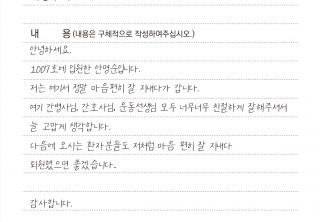 내 용 (내용은 구체적으로 작성하여주십시오.)
안녕하세요.
1007호에 입원한 안명순입니다.
저는 여기서 정말 마음편히 잘 지내다가 갑니다.
여기 간병사님, 간호사님, 운동선생님 모두 너무너무 친절하게 잘해주셔서
늘 고맙게 생각합니다.
다음에 오시는 환자분들도 저처럼 마음 편히 잘 지내다
퇴원했으면 좋겠습니다..
감사합니다.